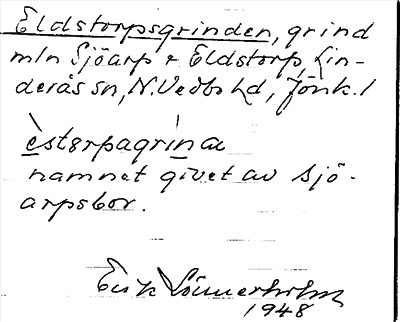 Eldstorpsgrinden, grind
mln Sjöarp o Eldstorp, Lin-
derås sn, N. Vedbo hd, Jönk. l
èstørpagrìna
namnet givet av Sjö-
arpsbor.
Erik Lönnerholm
1948